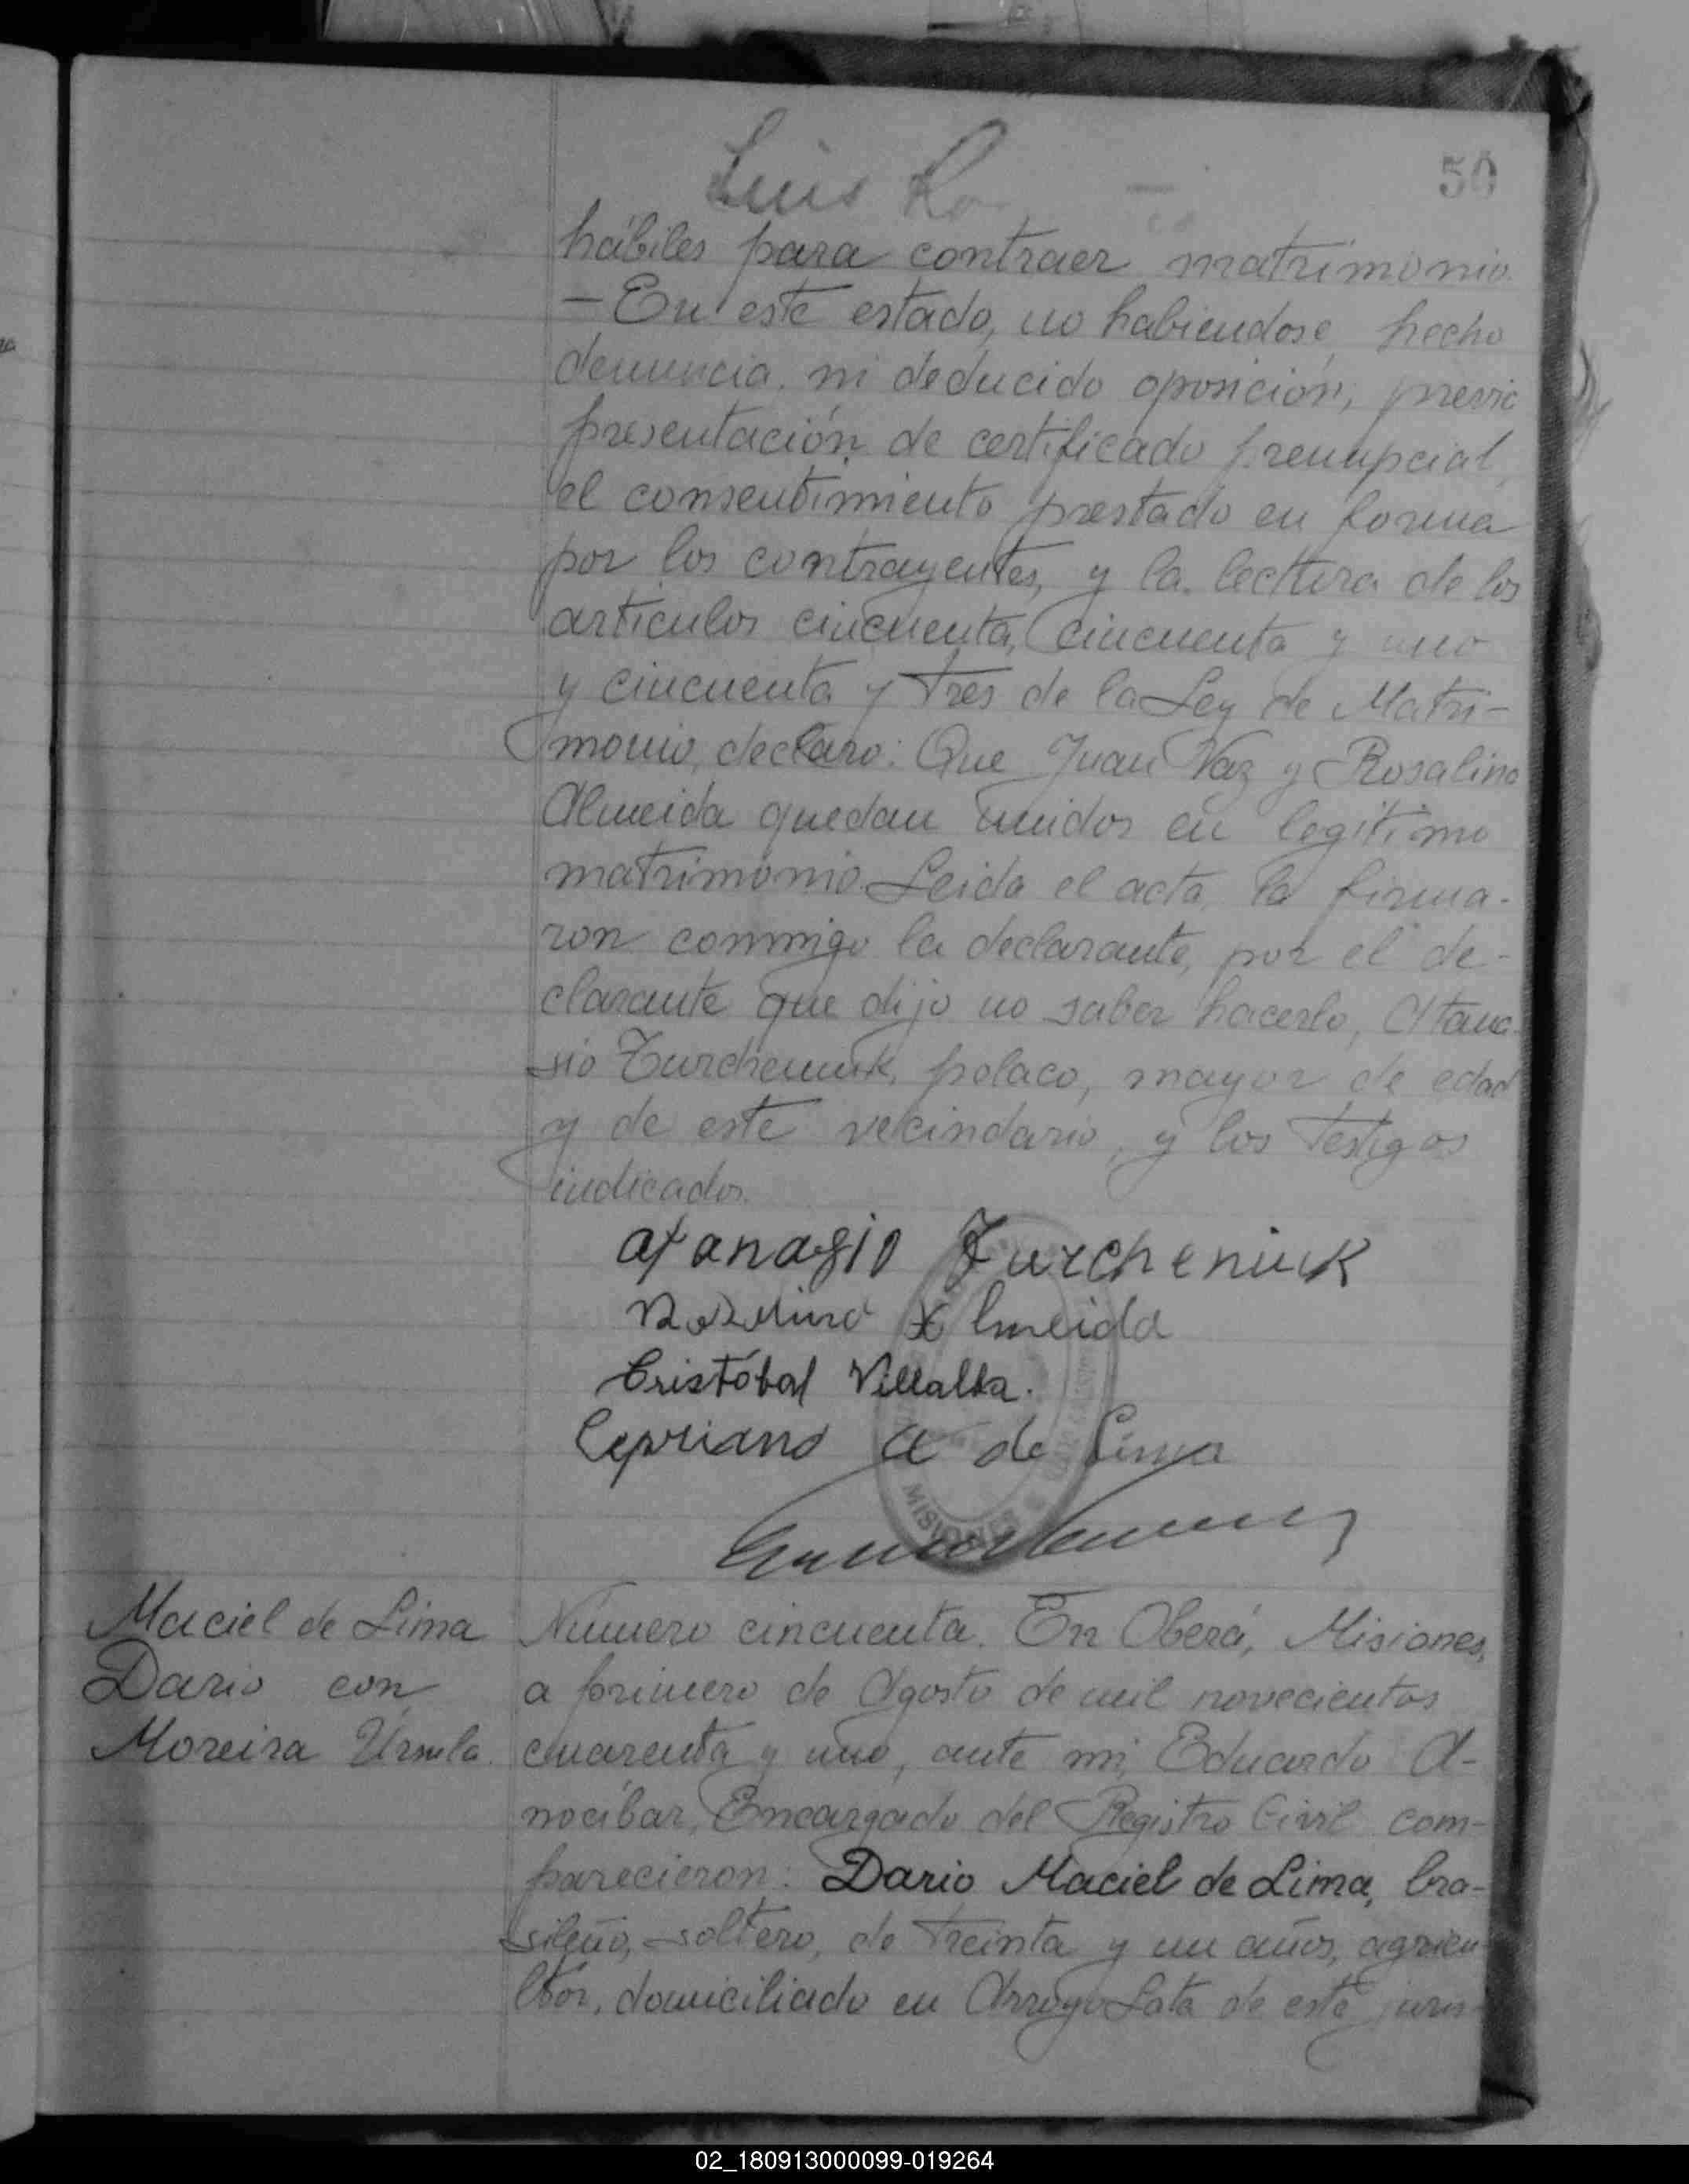 50
Luis
hábiles para contraer matrimonio.
— En este estado, no habiendose hecho
denuncia, ni deducido oposición, previo
presentación de certificado prenupcial,
el consentimiento prestado en forma
por los contrayentes, y la lectura de los
artículos cincuenta, cincuenta y uno
y cincuenta y tres de la Ley de Matri-
monio, declaro: Que Juan Vaz y Rosalino
Almeida quedan unidos en legitimo
matrimonio. Leida el acta, la firma-
ron conmigo la declarante, por el de-
clarante que dijo no saber hacerlo, Atana-
sio Turcheniuk, polaco, mayor de edad
y de este vecindario, y los testigos
indicados.
Atanasio Turcheniuk
Almeida
Cristóbal Villalba.
Cipriano A de Lima
MISIONES
Maciel de Lima
Dario con
Moreira Ursula.
Número cincuenta. En Oberá, Misiones,
a primero de Agosto de mil novecientos
cuarenta y uno, ante mi, Eduardo A-
nocíbar, Encargado del Registro Civil com-
parecieron: Dario Maciel de Lima, bra-
sileño, soltero, de treinta y un años, agricu-
ltor, domiciliado en Arroyo Lata de este juris-
02_180913000099-019264